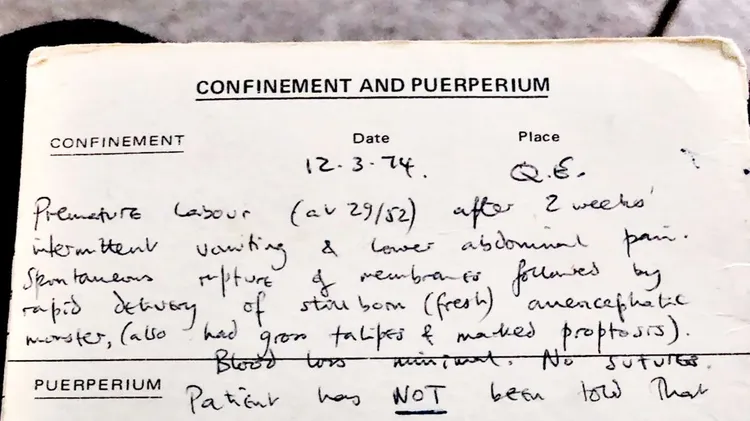 CONFINEMENT AND PUERPERIUM
CONFINEMENT Date Place
12.3.74. Q.E.
Premature Labour (at 29/52) after 2 weeks'
intermittent vomiting & lower abdominal pain.
Spontaneous rupture of membranes followed by
rapid delivery of stillborn (fresh) anencephalic
monster, (also had gross talipes & marked proptosis).
Blood loss minimal. No sutures.
PUERPERIUM
Patient has NOT been told that